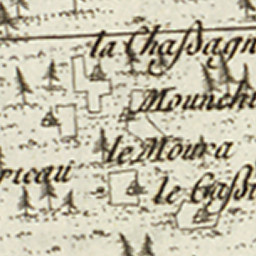 la Chaßagn
Mounchi
le Moura
rieau
le Caßi